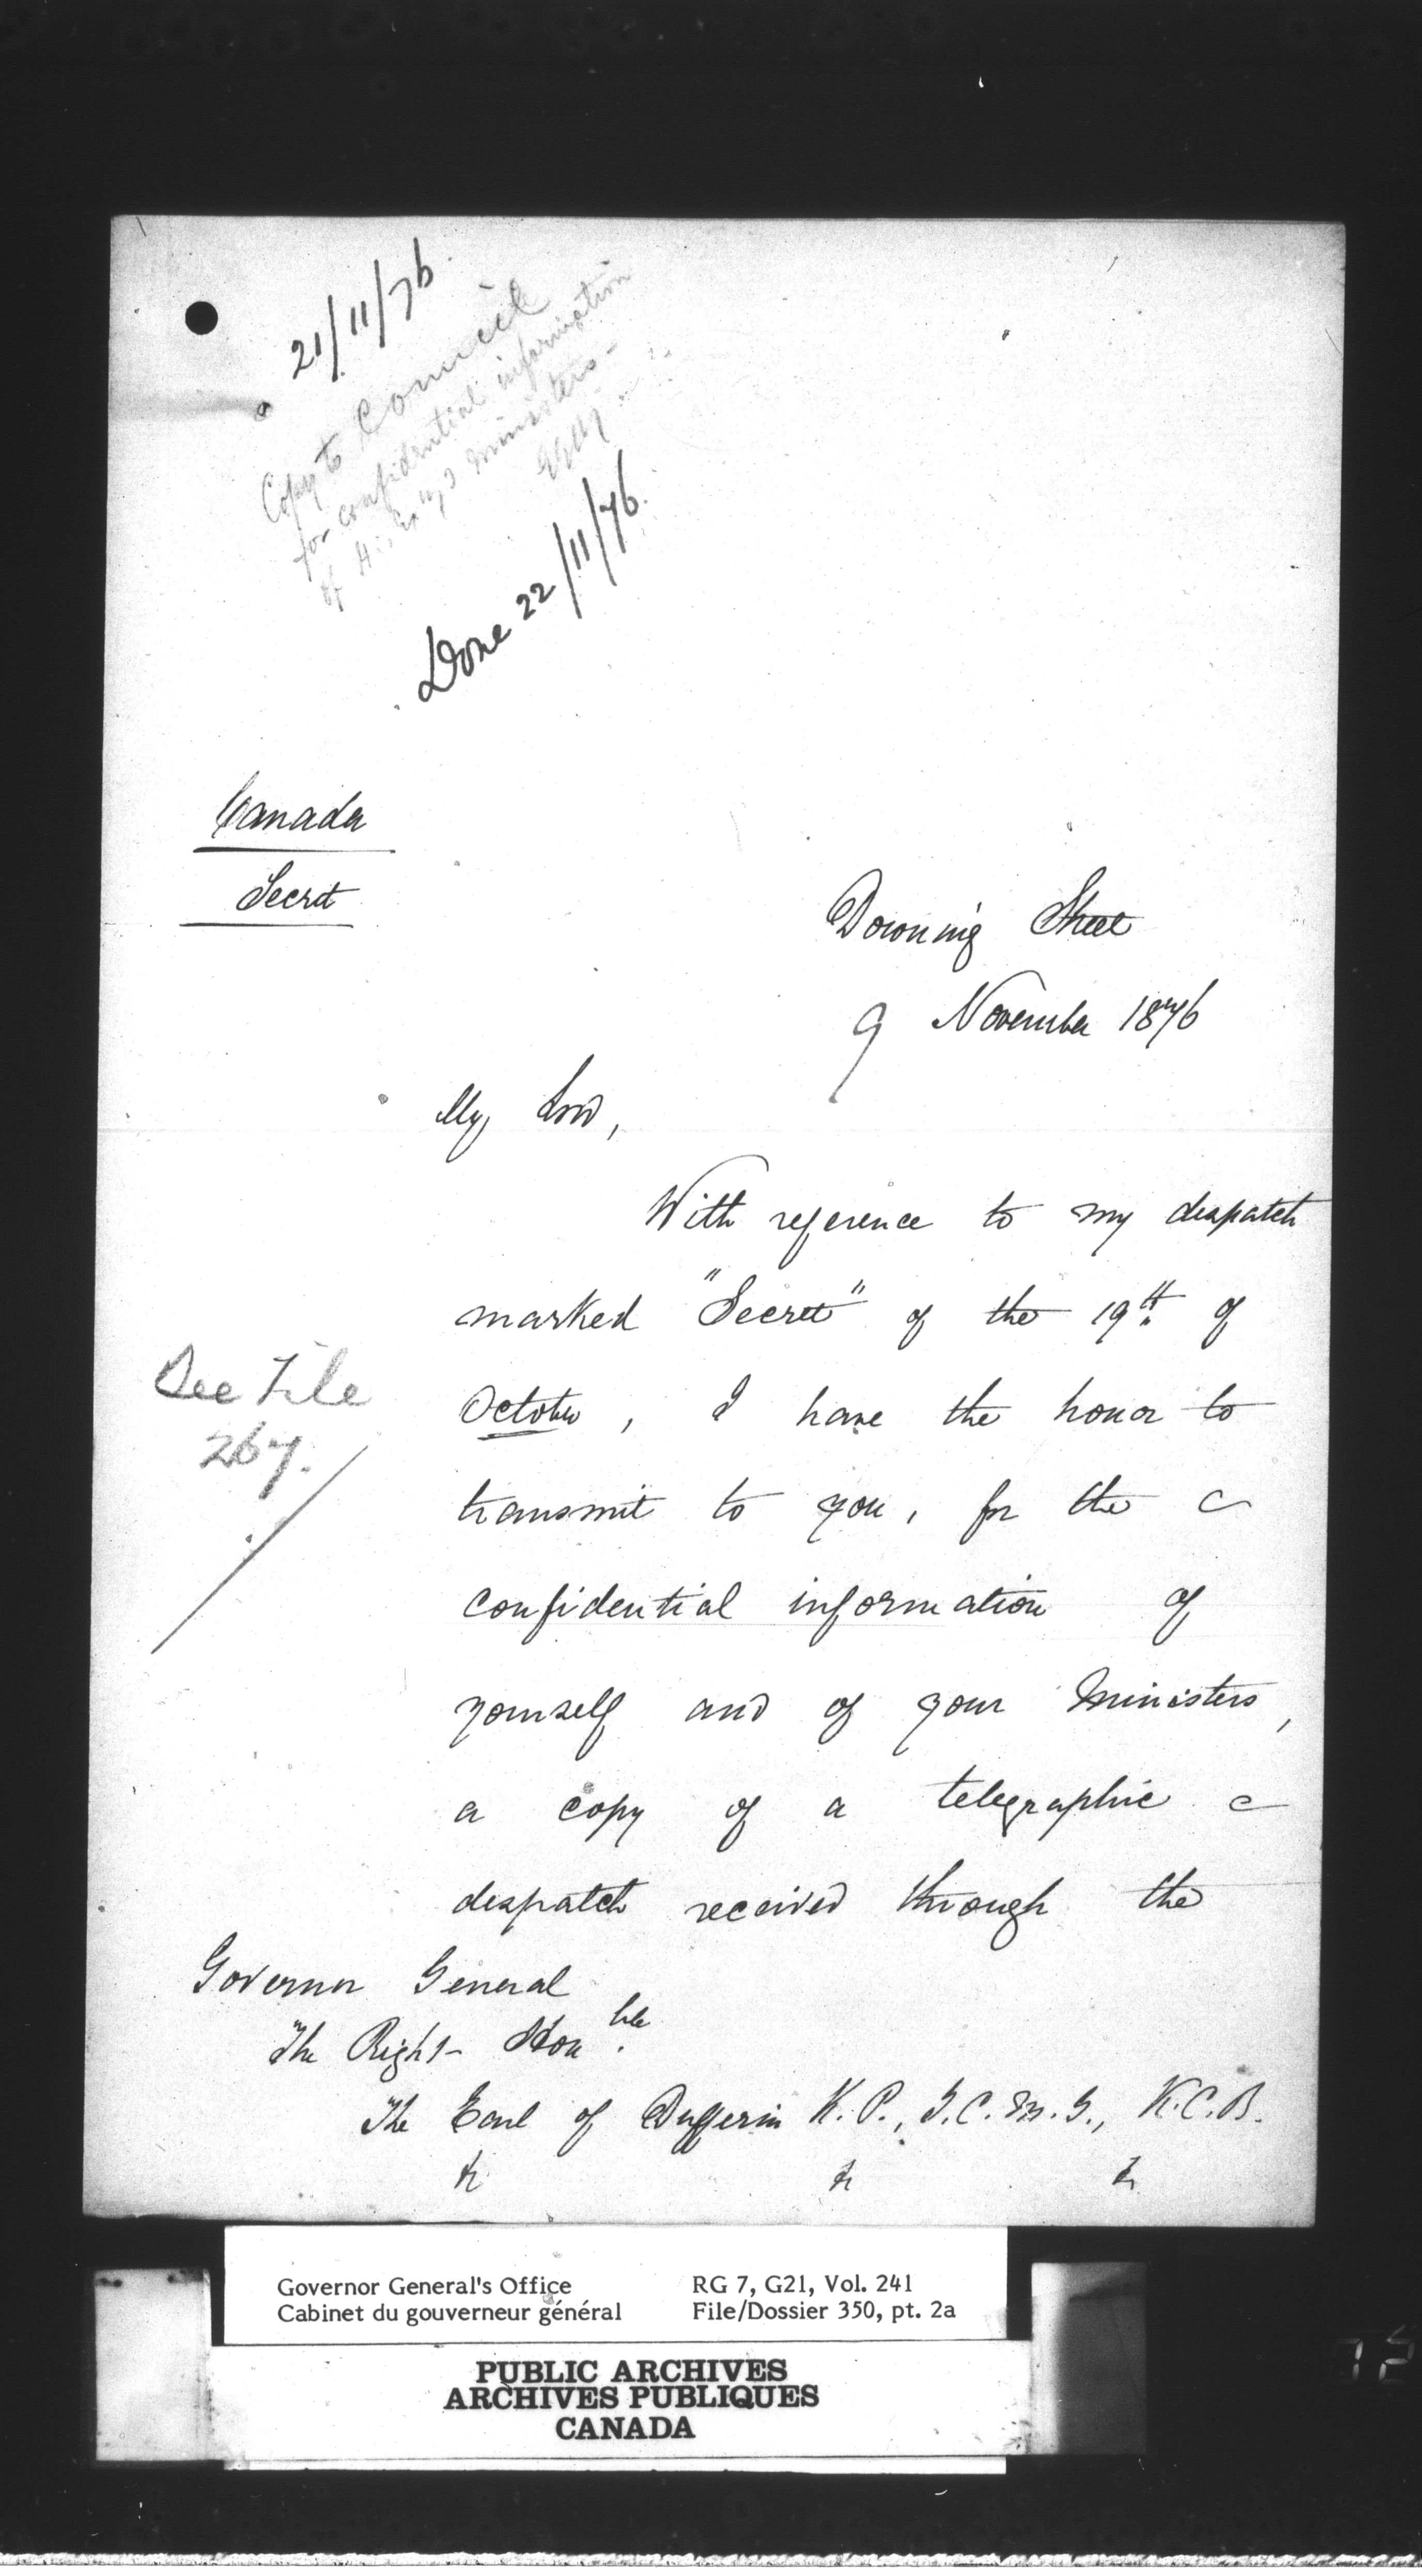 21/11/76.
Copy to Council
for confidential information
of His Ex'y's Ministers -
Done 22/11/76.
Canada
Secret
Downing Street
9 November 1876
My Lord,
With reference to my despatch
marked "Secret" of the 19th of
October, I have the honor to
transmit to you, for the
confidential information of
yourself and of your Ministers,
a copy of a telegraphic
despatch received through the
See File
267.
Governor General
The Right Honble
The Earl of Dufferin K.P., G.C.M.G., K.C.B.
&c &c &c
Governor General's Office
Cabinet du gouverneur général
RG 7, G21, Vol. 241
File/Dossier 350, pt. 2a
PUBLIC ARCHIVES
ARCHIVES PUBLIQUES
CANADA